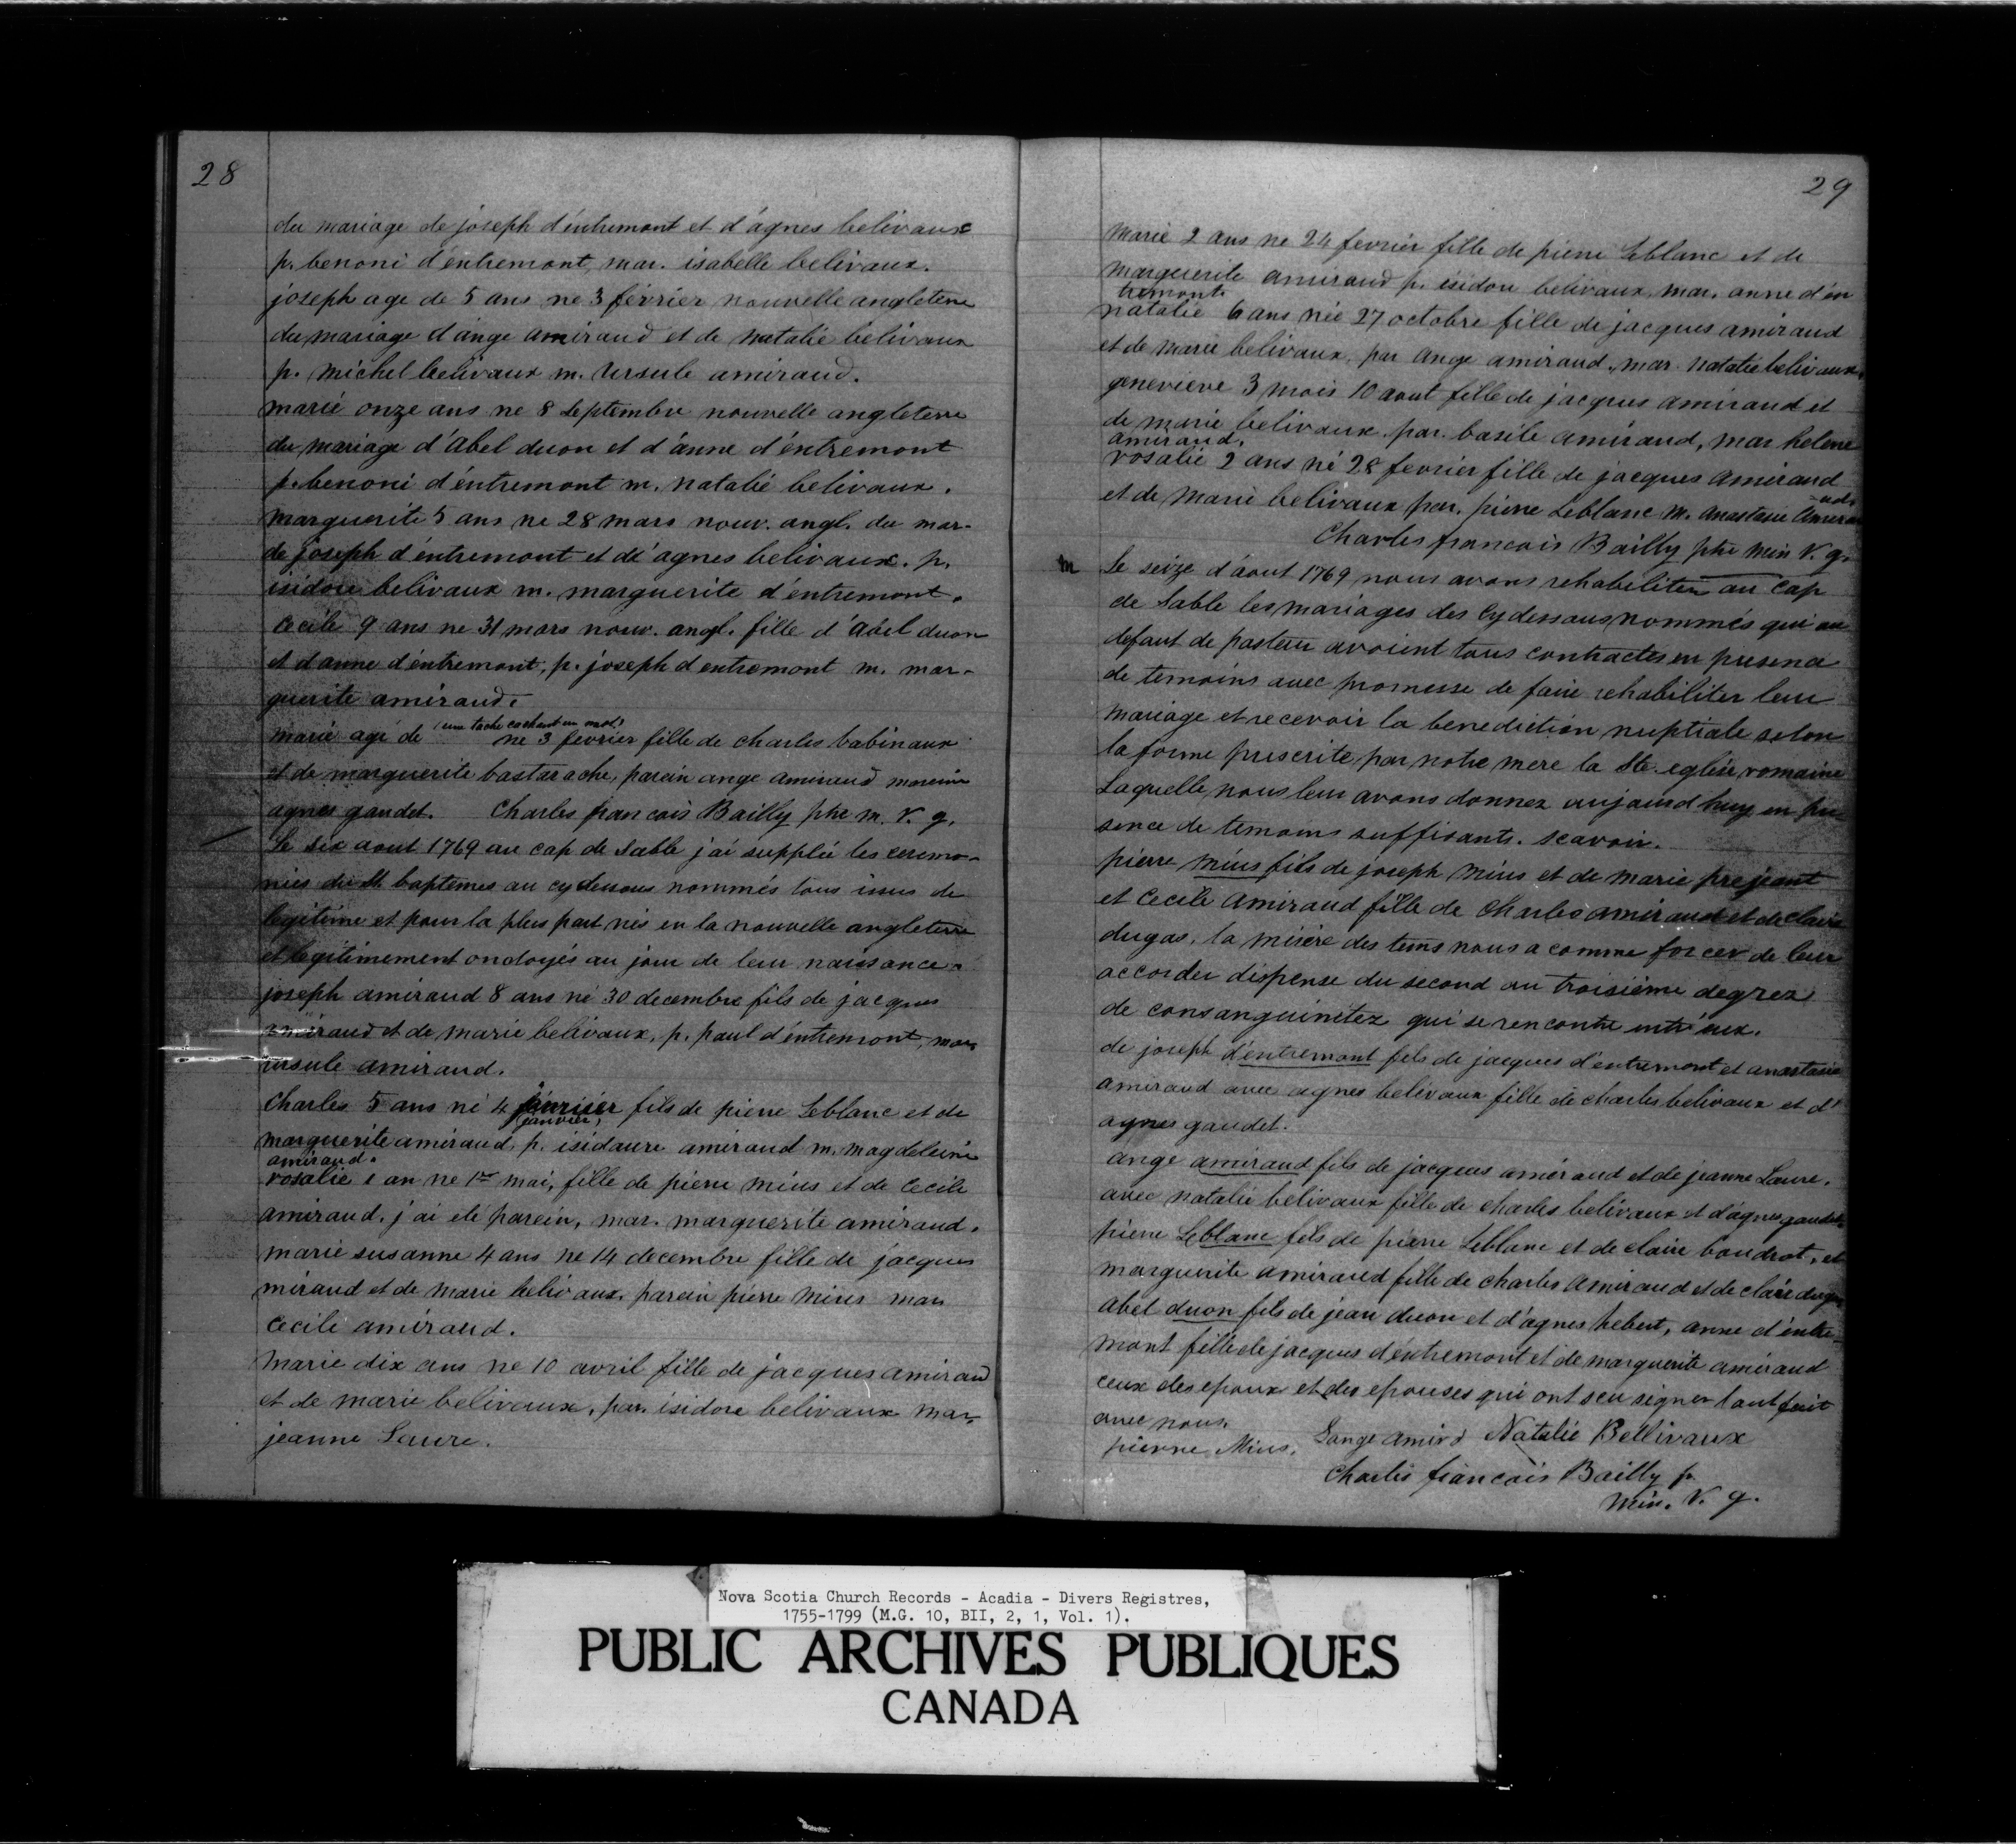 28
du mariage de joseph d'éntremont et d'ágnes belivaux
p. benoni d'éntremont, mar. isabelle belivaux.
joseph age de 5 ans ne 3 février nouvelle angleterre
du mariage d'ange amiraud et de natalié belivaux
p. michel belivaux m. Ursule amiraud.
marié onze ans ne 8 Septembre nouvelle angleterre
du mariage d'Abel duon et d'ánne d'éntremont
p. benoni d'éntremont m. natalié belivaux.
marguerite 5 ans ne 28 mars nouv. angl. du mar-
de joseph d'éntremont et d'agnes belivaux. p.
isidore belivaux m. marguerite d'éntremont.
Cecile 9 ans ne 31 mars nouv. angl. fille d'Abel duon
et d'anne d'éntremont, p. joseph d'entremont m. mar-
guerite amiraud.
marié agé de (une tache cachant un mot) ne 3 fevrier fille de charles babinaux
et de marguerite bastarache, parein ange amiraud mareine
agnes gaudet. Charles francois Bailly ptre m. V. g.
Le six aout 1769 au cap de Sable j'ai supplié les ceremo-
nies du St. baptemes au cy dessous nommés tous issus de
legitime et pour la plus part nés en la nouvelle angleterre
et legitimement ondoyés au jour de leur naissance.
joseph amiraud 8 ans né 30 decembre fils de jacques
amiraud et de marie belivaux, p. paul d'éntremont, mar.
ursule amiraud.
Charles 5 ans né 4 fevrier (janvier) fils de pierre Leblanc et de
marguerite amiraud, p. isidaure amiraud m. magdeleine
amiraud.
rosalie 1 an ne 1er mai, fille de pierre mius et de Cecile
amiraud. j'ai eté parein, mar. marguerite amiraud.
marie susanne 4 ans ne 14 decembre fille de jacques
miraud et de marie belivaux. parein pierre Mius mar.
Cecile amiraud.
Marie dix ans ne 10 avril fille de jacques amiraud
et de marie belivaux, par. isidore belivaux mar.
jeanne Laure.
29
Marie 2 ans ne 24 fevrier fille de pierre Leblanc et de
marguerite amiraud p. isidore belivaux, mar. anne d'én
tremont.
natalie 6 ans née 27 octobre fille de jacques amiraud
et de marie belivaux, par Ange amiraud., mar. Natalié belivaux.
genevieve 3 mois 10 aout fille de jacques amiraud et
de marie belivaux. par. basile amiraud, mar helene
amiraud.
rosalié 2 ans né 28 fevrier fille de jacques Amiraud
et de Marie belivaux par. pierre Leblanc m. Anastasie Amirau
-ud.
Charles francois Bailly ptre min V. g.
m Le seize d'áout 1769 nous avons rehabiliter au Cap
de Sable les mariages des Cy dessous nommés qui au
defaut de pasteur avoient tous contractes en presence
de temoins avec promesse de faire rehabiliter leur
mariage et recevoir la benediction nuptiale selon
la forme prescrite par notre mere la Ste. eglise romaine
Laquelle nous leur avons donnez aujourd'huy en pre-
sence de temoins suffisants. Scavoir.
pierre mius fils de joseph Mius et de Marie prejeant
et Cecile Amiraud fille de Charles amiraud et de Claire
dugas. la misére des tems nous a comme forcer de leur
accorder dispense du second au troisiéme degrez
de consanguinitez qui se rencontre entr'eux.
de joseph d'éntremont fils de jacques d'entremont et anastasie
amiraud avec agnes belivaux fille de charles belivaux et d'
agnes gaudet.
ange amiraud fils de jacques amiraud et de jeanne Laure.
avec natalie belivaux fille de charles belivaux et d'ágnes gaudet
pierre Leblanc fils de pierre Leblanc et de claire boudrot, et
marguerite amiraud fille de charles Amiraud et de claire dugas
Abel duon fils de jean duon et d'agnes hebert, anne d'éntre-
mont fille de jacques d'éntremont et de marguerite amiraud
ceux des epoux et des epouses qui ont seu signer l'ont fait
avec nous.
pierre Mius. Lange amiro Natalié Bellivaux
Charles francois Bailly p.
Min. V. g.
Nova Scotia Church Records - Acadia - Divers Registres,
1755-1799 (M.G. 10, BII, 2, 1, Vol. 1).
PUBLIC ARCHIVES PUBLIQUES
CANADA